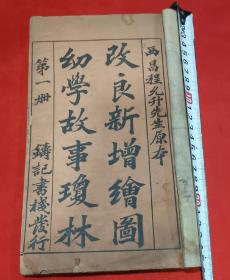 西昌程允升先生原本
改良新增繪圖
幼學故事瓊林
第一册
鑄記書棧發行